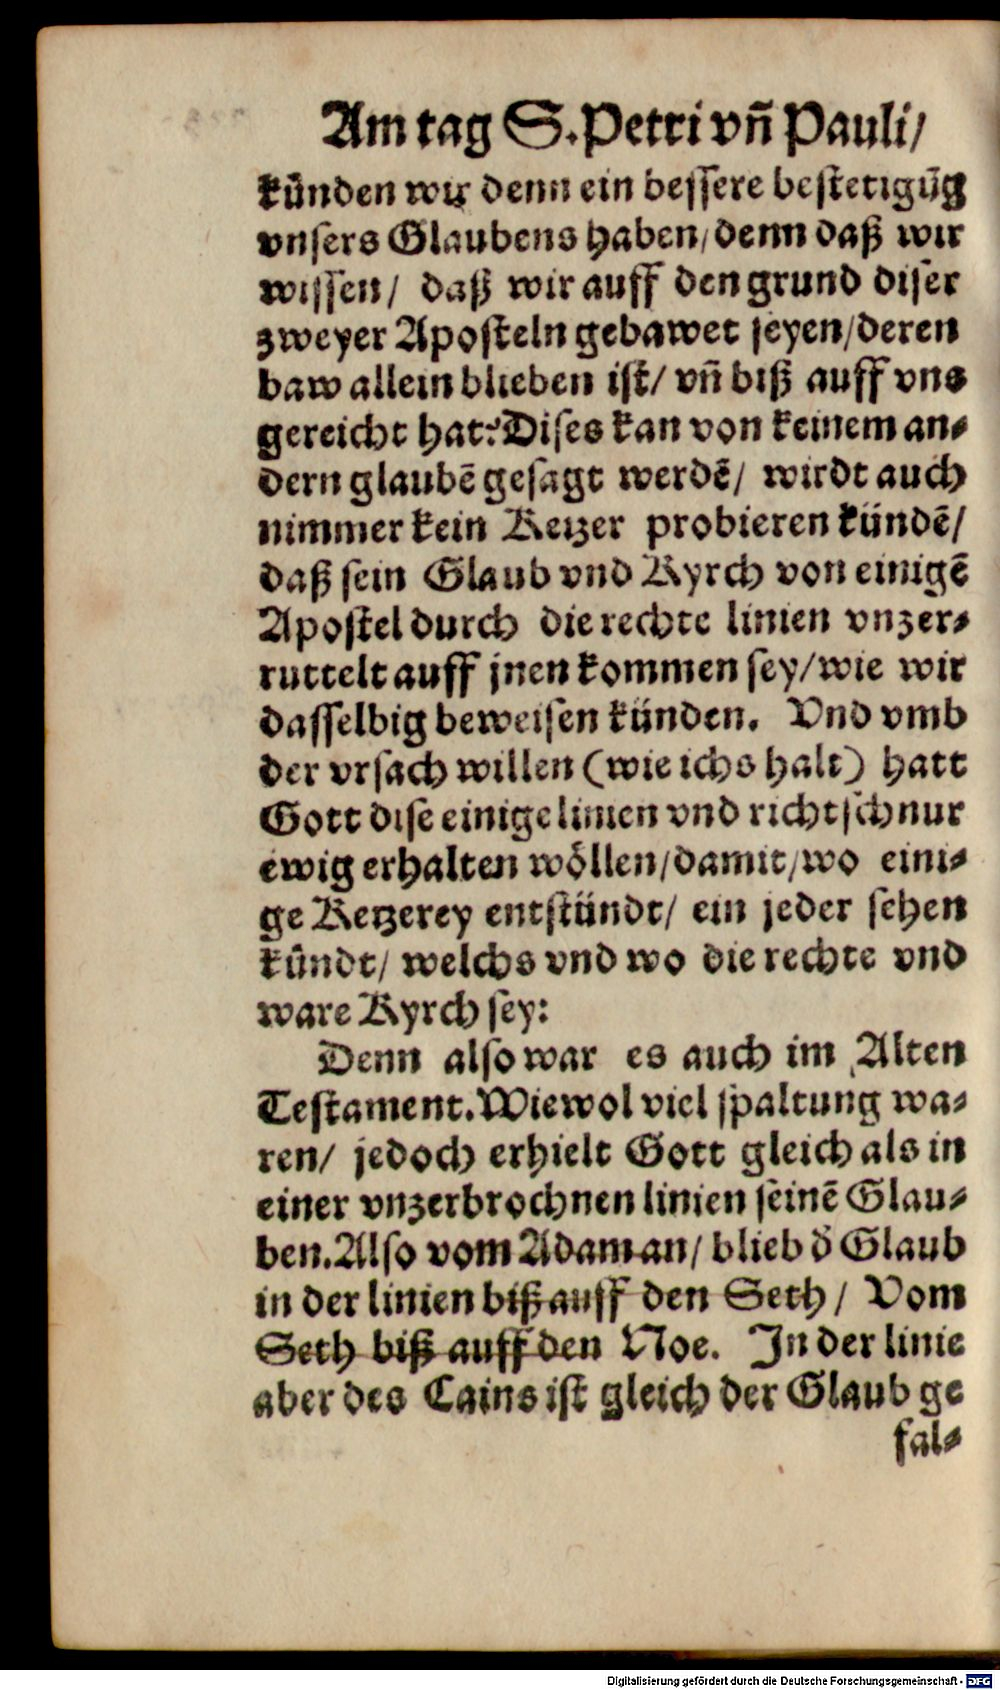 Am tag S. Petri vñ Pauli/
künden wir denn ein bessere bestetigũg
vnsers Glaubens haben/denn daß wir
wissen/ daß wir auff den grund diser
zweyer Aposteln gebawet seyen/deren
baw allein blieben ist/ vñ biß auff vns
gereicht hat? Dises kan von keinem an⸗
dern glaubẽ gesagt werdẽ/ wirdt auch
nimmer kein Ketzer probieren kündẽ/
daß sein Glaub vnd Kyrch von einigẽ
Apostel durch die rechte linien vnzer⸗
ruttelt auff jnen kommen sey/wie wir
dasselbig beweisen künden. Vnd vmb
der vrsach willen (wie ichs halt) hatt
Gott dise einige linien vnd richtschnur
ewig erhalten wöllen/damit/wo eini⸗
ge Ketzerey entstündt/ ein jeder sehen
kündt/ welchs vnd wo die rechte vnd
ware Kyrch sey:
Denn also war es auch im Alten
Testament. Wiewol viel spaltung wa⸗
ren/ jedoch erhielt Gott gleich als in
einer vnzerbrochnen linien seinẽ Glau⸗
ben. Also vom Adam an/ blieb d̕ Glaub
in der linien biß auff den Seth/ Vom
Seth biß auff den Noe. In der linie
aber des Cains ist gleich der Glaub ge
fal⸗
Digitalisierung gefördert durch die Deutsche Forschungsgemeinschaft - DFG